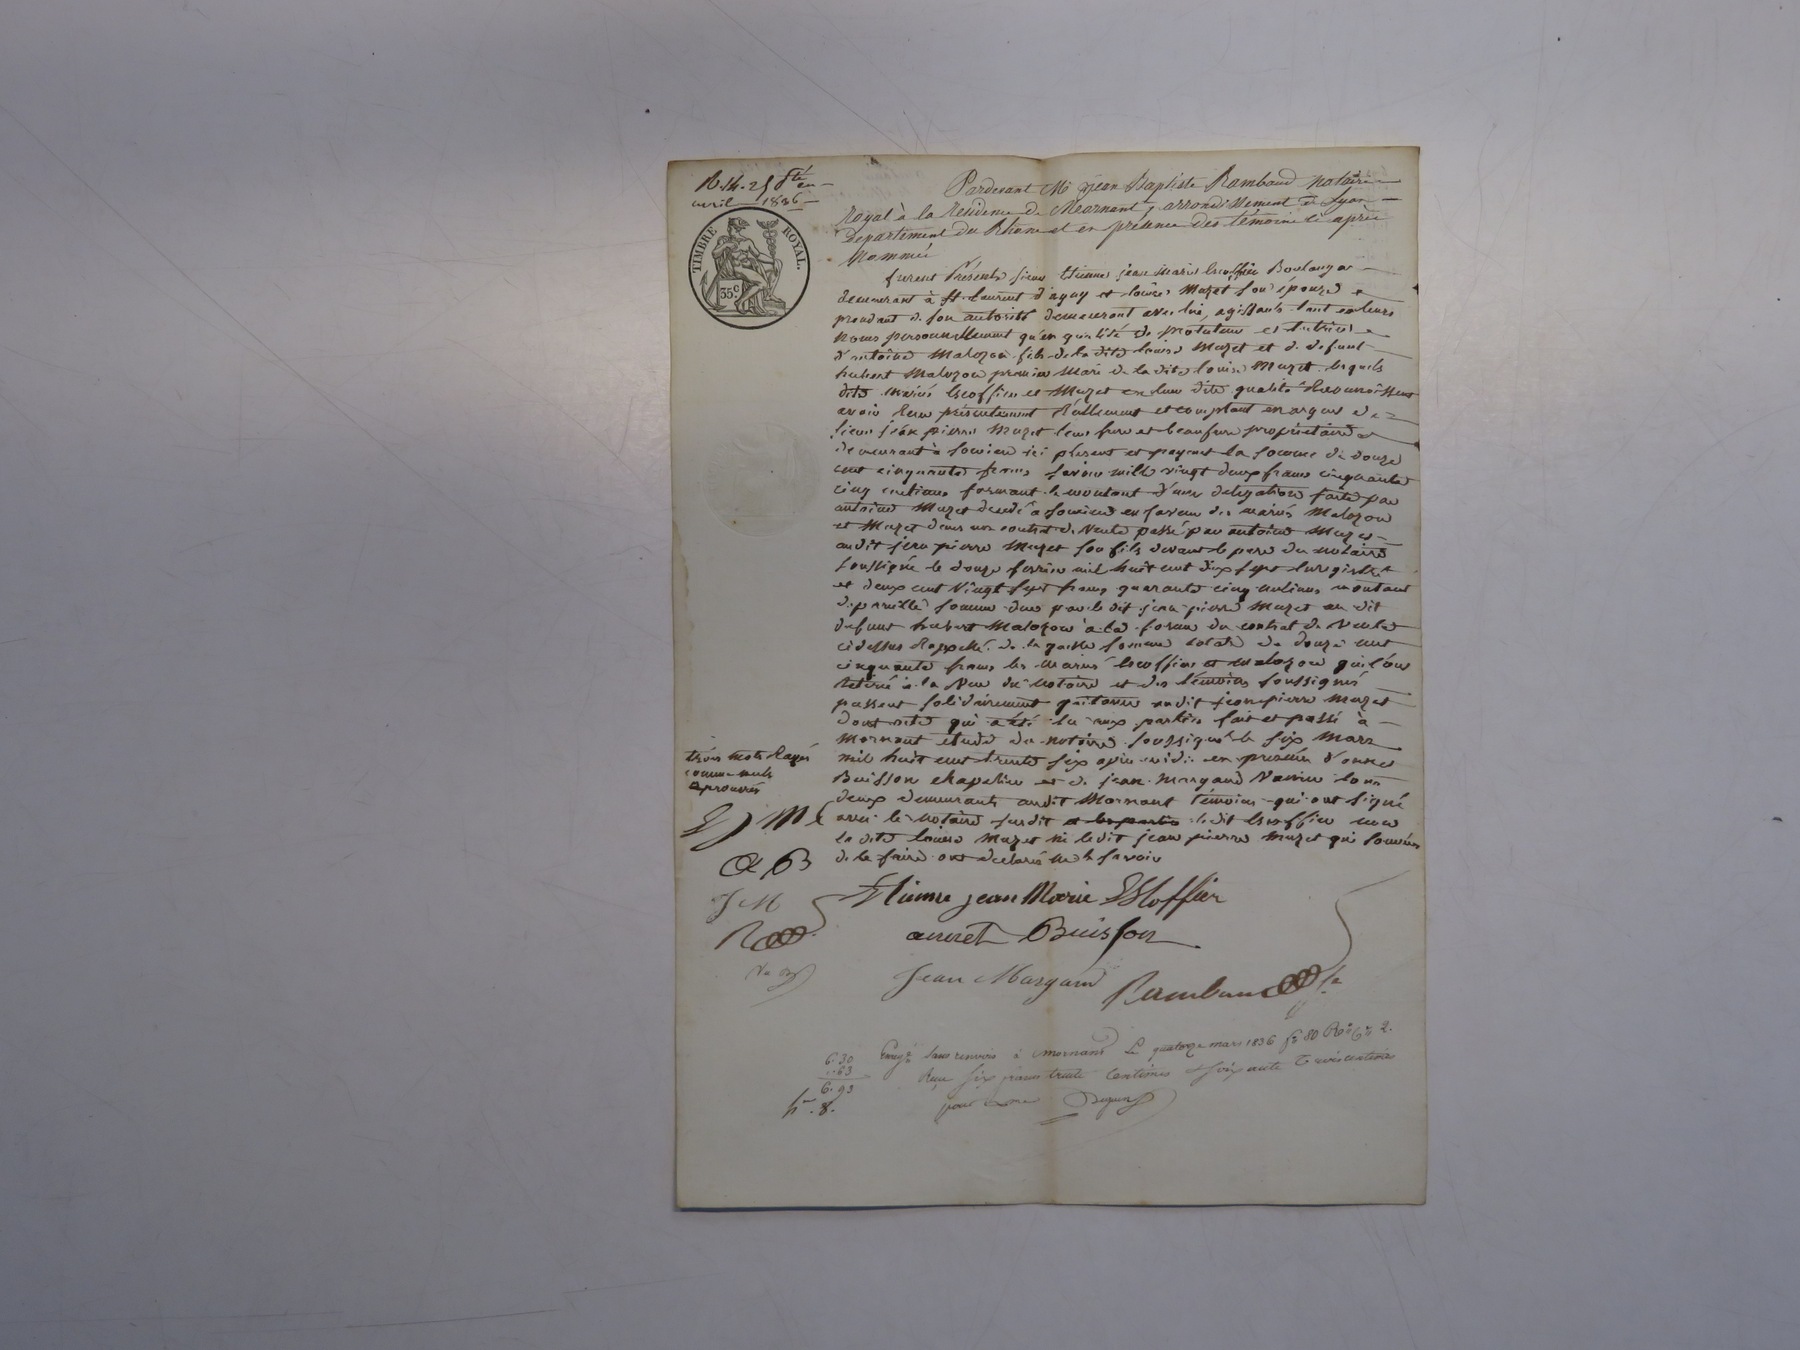 avril 1836
TIMBRE ROYAL.
35c
Pardevant Me jean Baptiste Rambaud notaire
Royal à la Residence de Mornant, arrondissement de Lyon
Departement du Rhône et en présence des témoins ci après
Nommés
furent Présents sieur Etienne jean Marie Escoffier Boulanger
demeurant à St. Laurent d'agny et louise Mazet son épouse
prendant de son autorité demeurant avec lui, agissants tant en leurs
noms personnellement qu'en qualité de protuteur et tutrice
d'antoine Malozon fils de la dite louise Mazet et de defunt
hubert Malozon premier mari de la dite louise Mazet lesquels
dits mariés Escoffier et Mazet en leur dite qualité Reconnoissent
avoir Reçu présentement Réellement et comptant en argent de
sieur jean pierre Mazet leur frere et beaufrere propriétaire
demeurant à ici présent et payant la somme de douze
cent cinquante francs savoir mille vingt deux francs cinquante
cinq centimes formant le montant d'une delegation faite par
antoine Mazet decedé à en faveur des mariés Malozon
et Mazet dans un contrat de Vente passé par antoine Mazet
audit jean pierre Mazet son fils devant le pere du notaire
soussigné le douze fevrier mil huit cent dix sept Enregistré
et deux cent Vingt sept francs quarante cinq centimes montant
de pareille somme due par le dit jean pierre Mazet au dit
defunt hubert Malozon à la forme du contrat de Vente
cidessus Rappellé. de la quelle somme totale de douze cent
cinquante francs les mariés Escoffier et Malozon qui l'ont
Retirée à la Vue du notaire et des témoins soussignés
passent solidairement quittance audit jean pierre Mazet
dont acte qui a été lu aux parties fait et passé à
Mornant étude du notaire soussigné le six mars
mil huit cent trente six après midi en présence d'annet
Buisson chapelier et de jean Margand tous
deux demeurants audit Mornant témoins qui ont signé
avec le notaire susdit et les parties ledit Escoffier non
la dite louise Mazet ni le dit jean pierre Mazet qui
de le faire ont declaré ne le savoir
trois mots Rayés
comme nuls
aprouvés
E J M E
a B
J M
R
Etienne jean Marie EScoffier
annet Buisson
Jean Margand
Rambaud
Enregé sans renvois à Mornant Le quatorze mars 1836 fo 80 Ro Ce 2.
Reçu six francs trente Centimes & soixante Trois centimes
pour
6.30
.63
6.93
8.